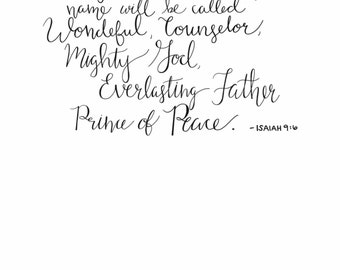 name will be called
Wondeful, Counselor,
Mighty God,
Everlasting Father
Prince of Peace. -ISAIAH 9:6